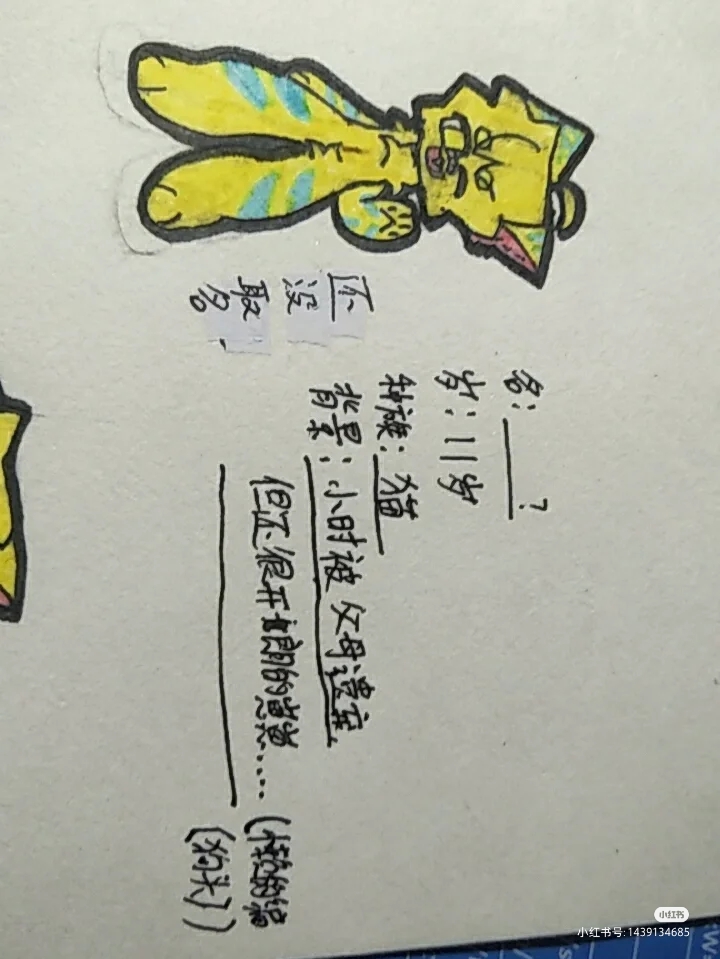 还没取名.
名:____?
岁:11岁
种族:猫
背景:小时被父母遗弃
但还很开朗的
(狗头))
小红书
小红书号:1439134685